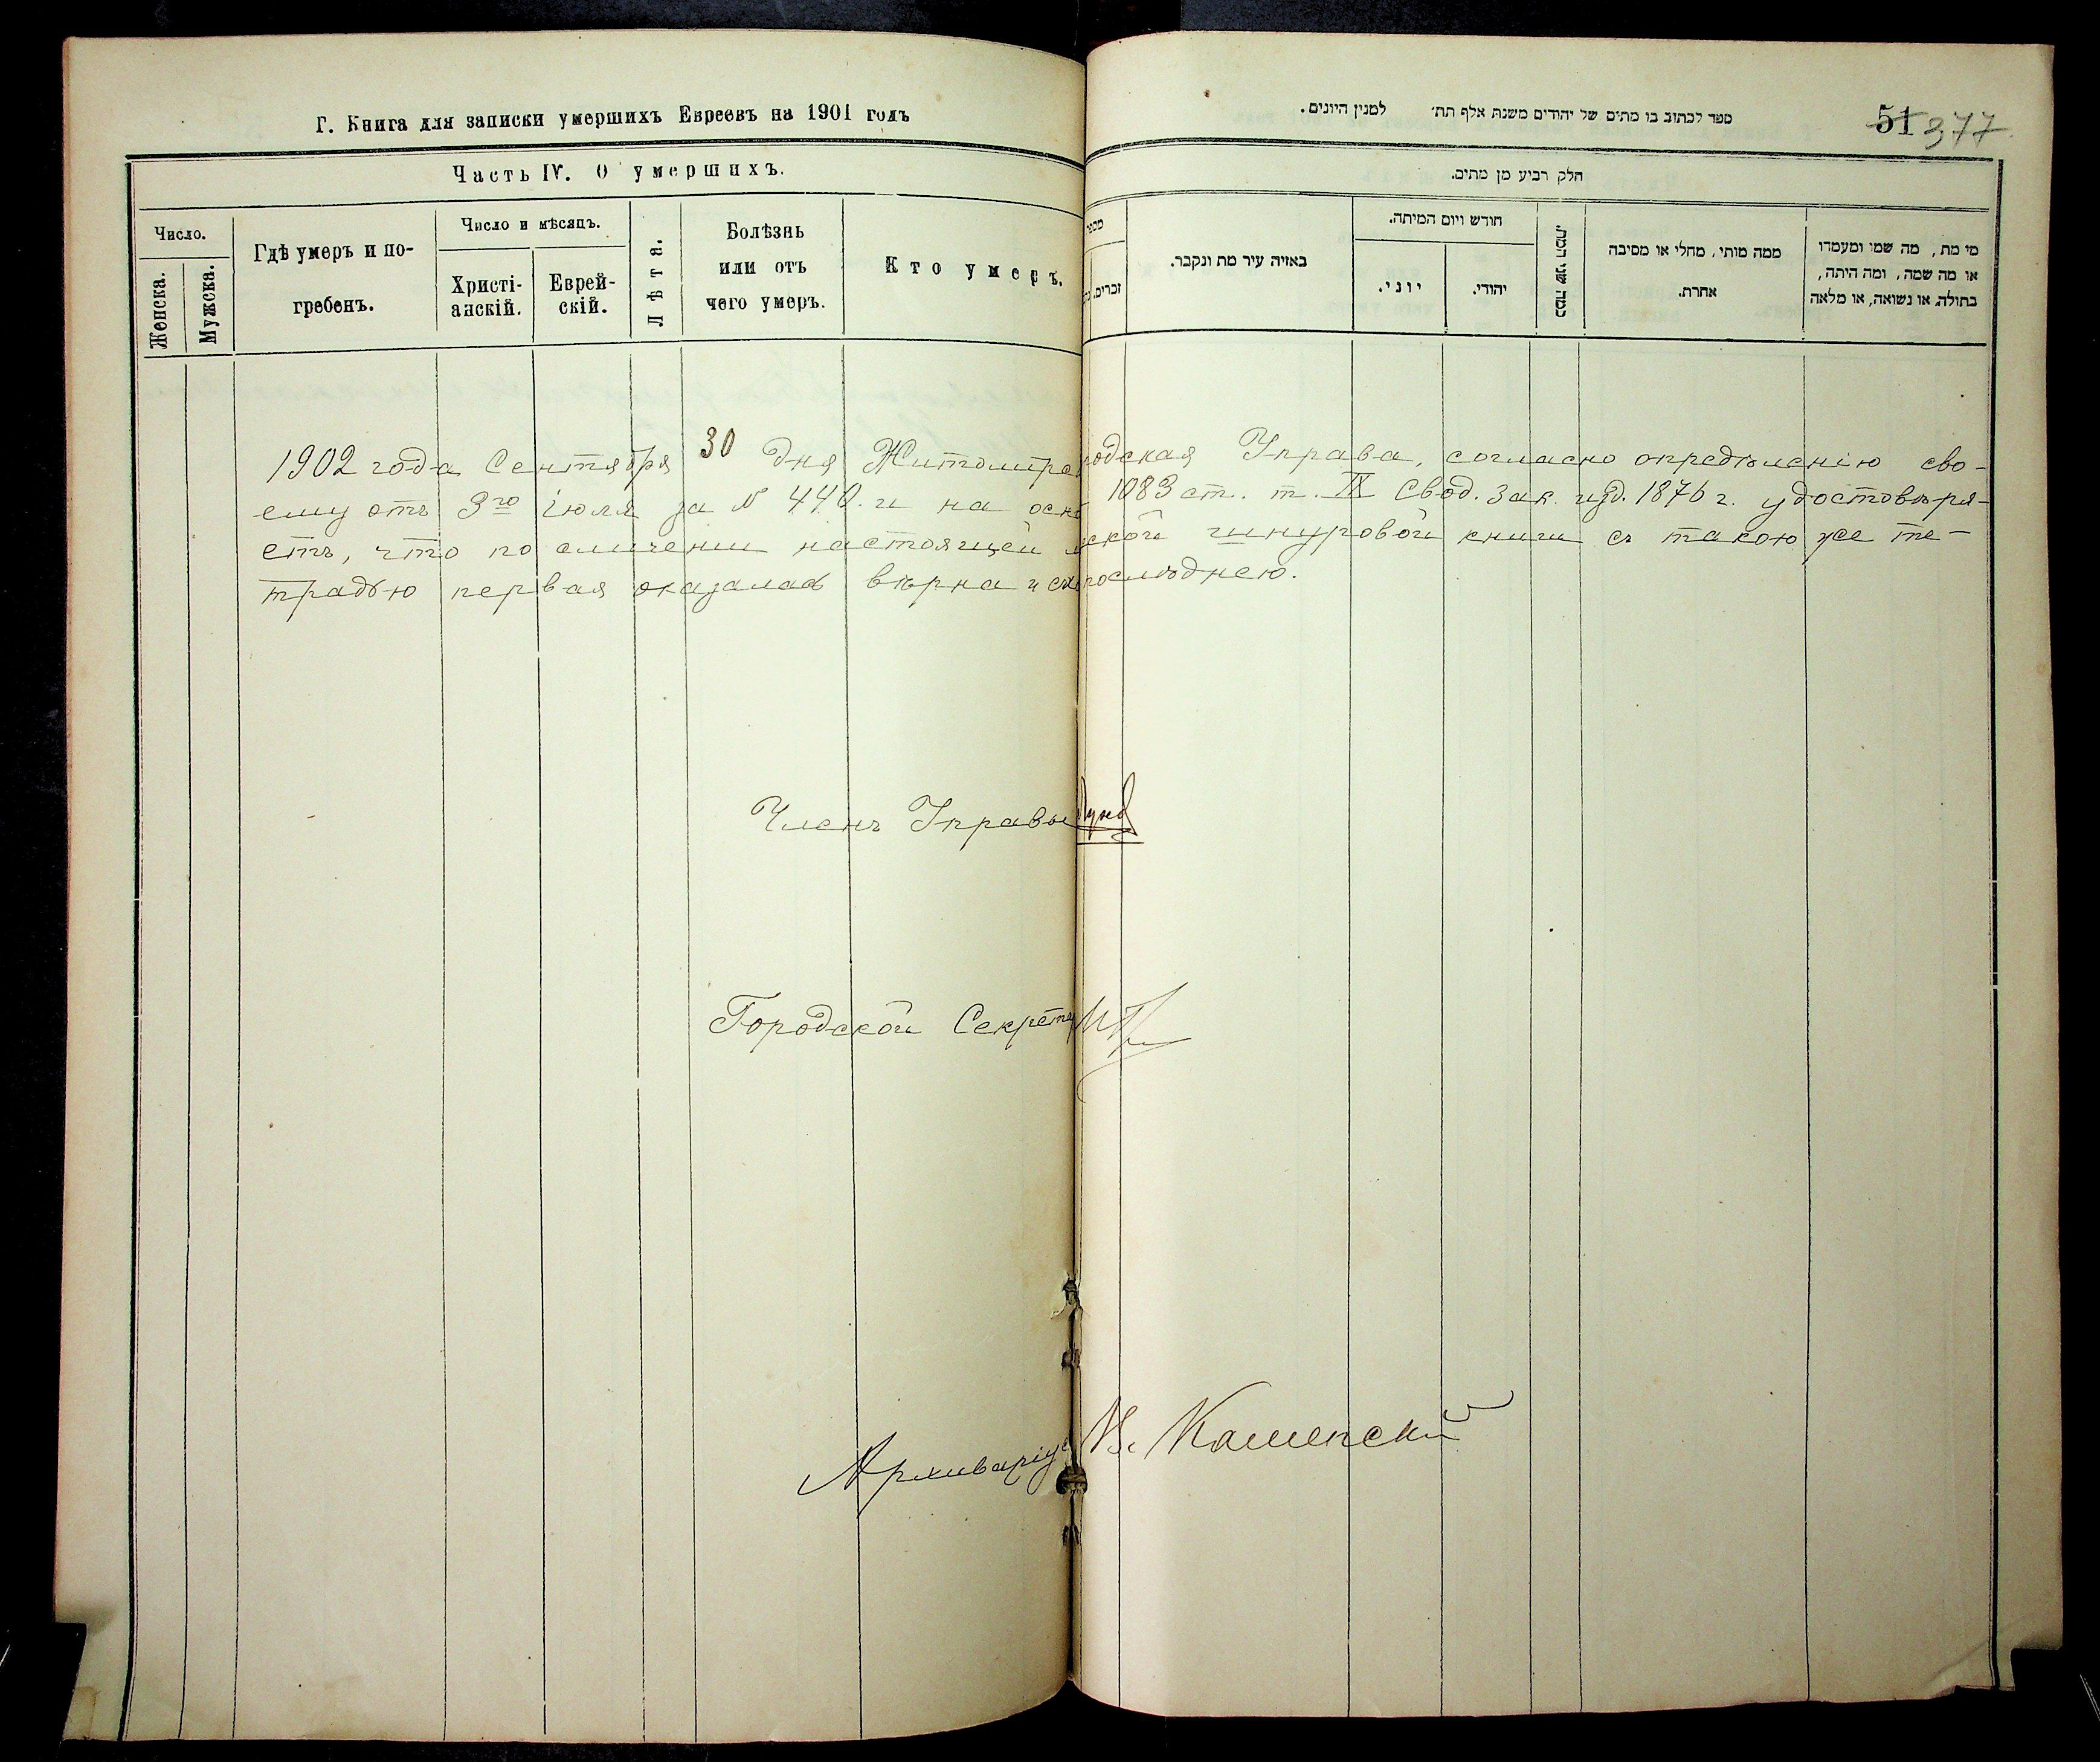 Г. Книга для записки умершихъ Евреевъ на 1901 годъ
Часть IV. О умершихъ.
Число.
Женска.
Мужска.
Гдѣ умеръ и по-
гребенъ.
Число и мѣсяцъ.
Христі-
анскій.
Еврей-
скій.
Лѣта.
Болѣзнь
или отъ
чего умеръ.
Кто умеръ.
ספר לכתוב בו מתים של יהודים משנת אלף תת׳ למנין היונים.
51 377
חלק רביע מן מתים.
זכרים.
באיזה עיר מת ונקבר.
חודש ויום המיתה.
יוני.
יהודי.
כמה שני המת.
ממה מותי, מחלי או מסיבה
אחרת.
מי מת, מה שמו ומעמדו
או מה שמה, ומה היתה,
בתולה, או נשואה, או מלאה
1902 года Сентября 30 дня Житомир одская Управа, согласно опредѣленію сво-
ему отъ 3го іюля за № 440. и на осно 1083 ст. т. IX Свод. Зак. изд. 1876 г. удостовѣря-
етъ, что по сличении настоящей ской шнуровой книги съ такою же те-
традью первая оказалась вѣрна и сх послѣднею.
Членъ Управы
Городской Секретар
Архиваріус В. Каменский